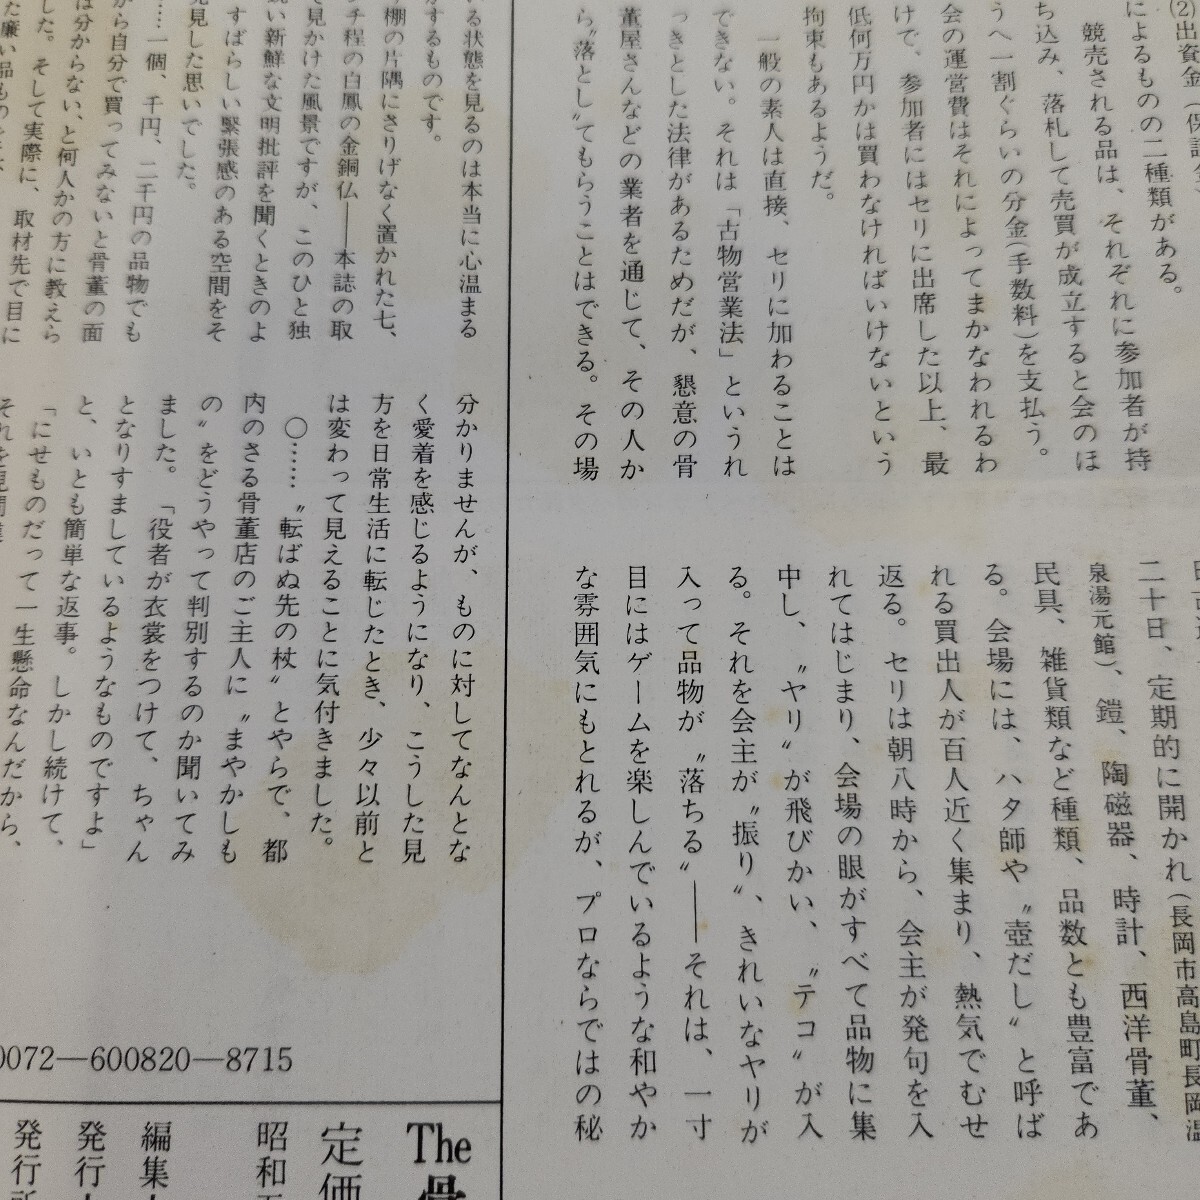 (2)出資金(保証金
によるものの二種類がある。
競売される品は、それぞれに参加者が持
ち込み、落札して売買が成立すると会のほ
うへ一割ぐらいの分金(手数料)を支払う。
会の運営費はそれによってまかなわれるわ
けで、参加者にはセリに出席した以上、最
低何万円かは買わなければいけないという
拘束もあるようだ。
一般の素人は直接、セリに加わることは
できない。それは「古物営業法」というれ
っきとした法律があるためだが、懇意の骨
董屋さんなどの業者を通じて、その人か
ら〝落とし〟てもらうことはできる。その場
二十日、定期的に開かれ(長岡市高島町長岡温
泉湯元館)、鎧、陶磁器、時計、西洋骨董、
民具、雑貨類など種類、品数とも豊富であ
る。会場には、ハタ師や〝壺だし〟と呼ば
れる買出人が百人近く集まり、熱気でむせ
返る。セリは朝八時から、会主が発句を入
れてはじまり、会場の眼がすべて品物に集
中し、〝ヤリ〟が飛びかい、〝テコ〟が入
る。それを会主が〝振り〟、きれいなヤリが
入って品物が〝落ちる〟――それは、一寸
目にはゲームを楽しんでいるような和やか
な雰囲気にもとれるが、プロならではの秘
いる状態を見るのは本当に心温まる
がするものです。
棚の片隅にさりげなく置かれた七、
ンチ程の白鳳の金銅仏――本誌の取
で見かけた風景ですが、このひと独
鋭い新鮮な文明批評を聞くときのよ
すばらしい緊張感のある空間をそ
発見した思いでした。
……一個、千円、二千円の品物でも
から自分で買ってみないと骨董の面
は分からない、と何人かの方に教えら
した。そして実際に、取材先で目に
た廉い品ものを
分かりませんが、ものに対してなんとな
く愛着を感じるようになり、こうした見
方を日常生活に転じたとき、少々以前と
は変わって見えることに気付きました。
〇……〝転ばぬ先の杖〟とやらで、都
内のさる骨董店のご主人に〝まやかしも
の〟をどうやって判別するのか聞いてみ
ました。「役者が衣裳をつけて、ちゃん
となりすましているようなものですよ」
と、いとも簡単な返事。しかし続けて、
「にせものだって一生懸命なんだから、
それを見
0072―600820―8715
The骨
定価
昭和五
編集
発行
発行所